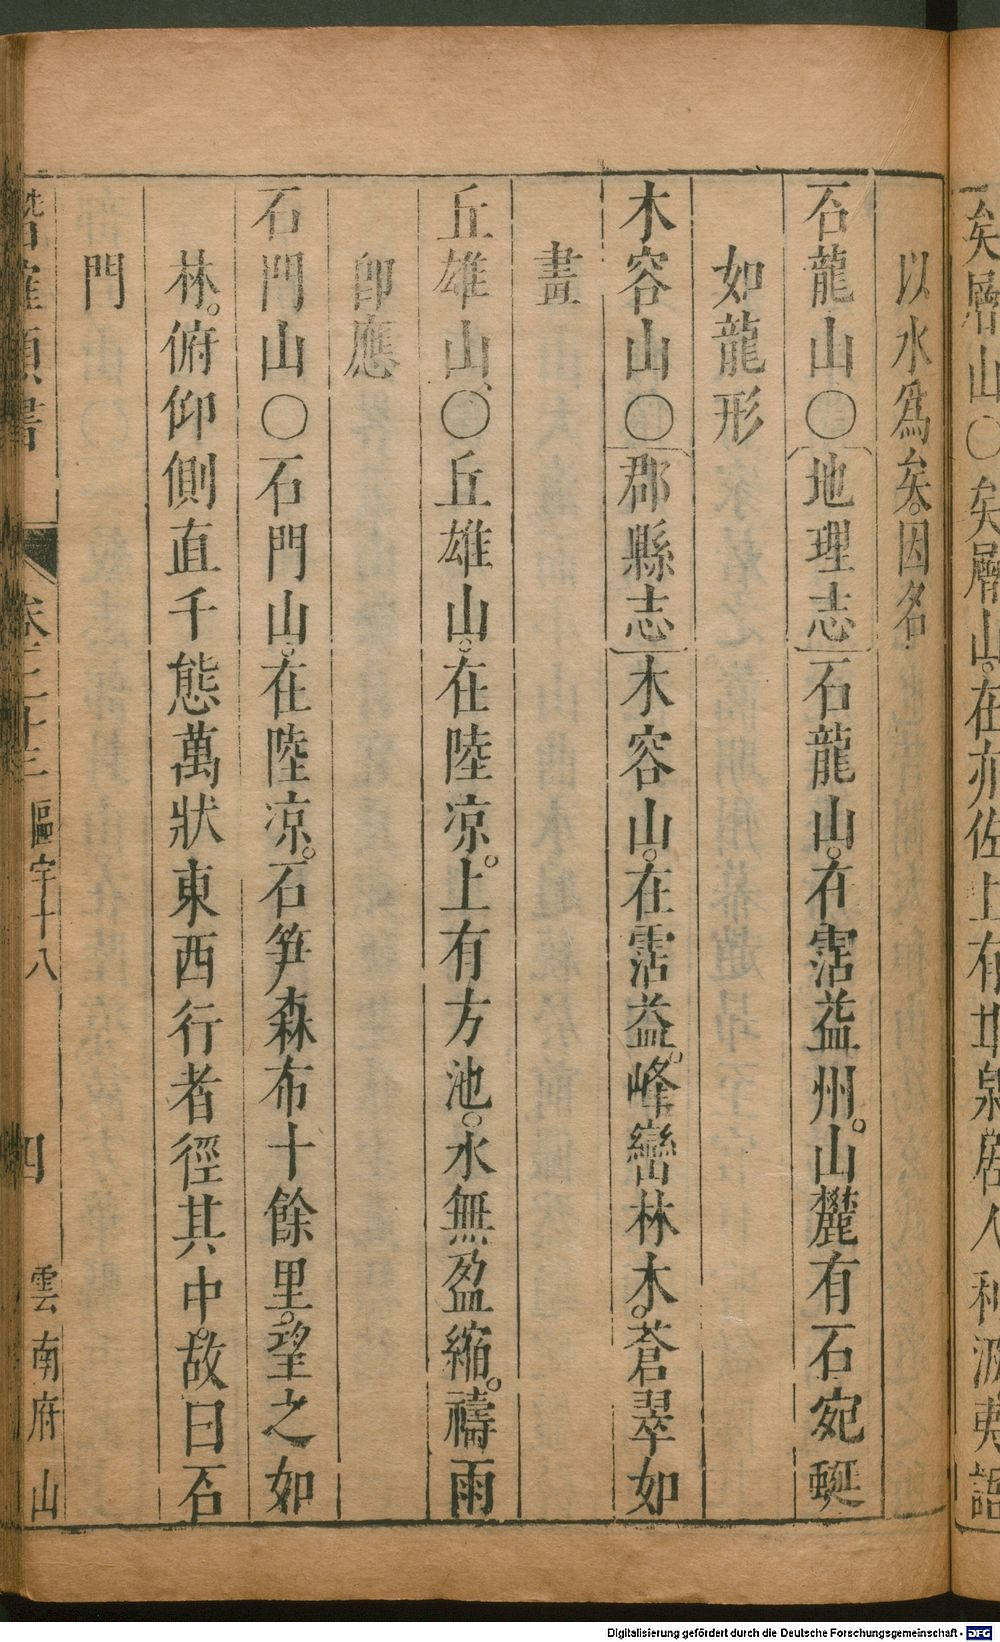 矣層山〇矣層山。在亦佐上有
以水爲矣。因名
石龍山〇地理志石龍山。在霑益州。山麓有石宛蜒
如龍形
木容山〇郡縣志木容山。在霑益。峰巒林木。蒼翠如
畫
丘雄山〇丘雄山。在陸凉。上有方池。水無盈縮。禱雨
卽應
石門山〇石門山。在陸凉。石笋森布十餘里。望之如
林。俯仰側直千態萬狀東西行者徑其中。故曰石
門
卷二十三 區字十八 四 雲南府 山
Digitalisierung gefördert durch die Deutsche Forschungsgemeinschaft - DFG